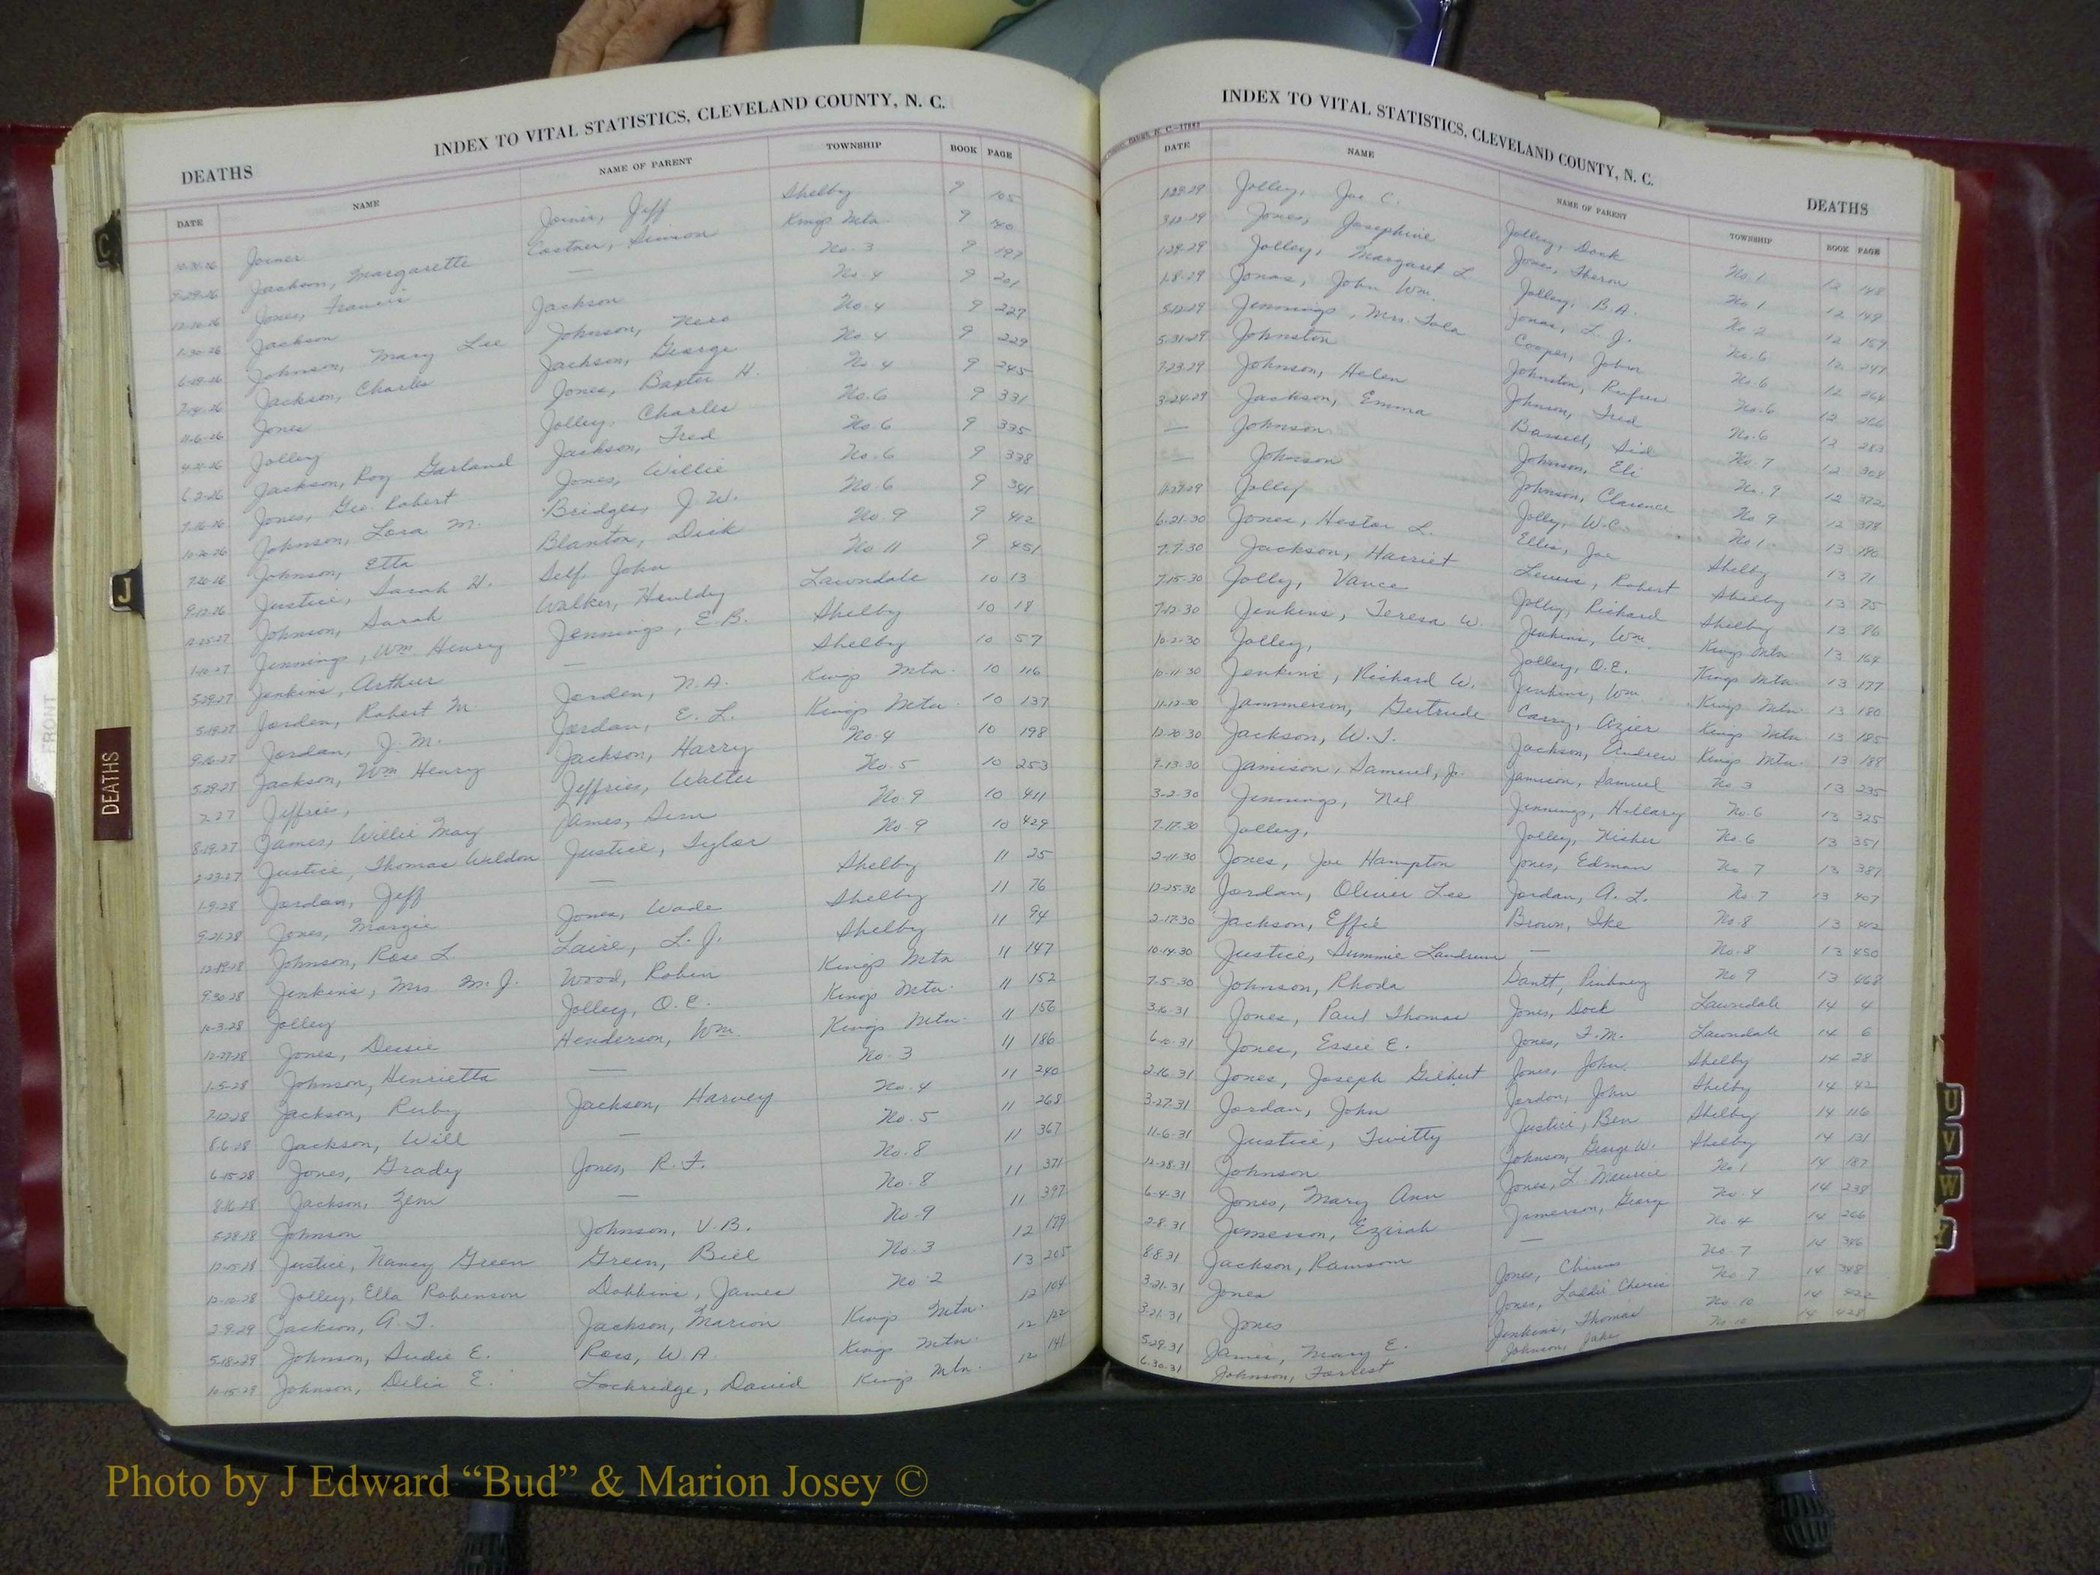 INDEX TO VITAL STATISTICS, CLEVELAND COUNTY, N. C.
DEATHS
DATE NAME NAME OF PARENT TOWNSHIP BOOK PAGE
10-31-26 Joiner Joiner, Jeff Shelby 9 105
9-29-26 Jackson, Margarette Costner, Simion Kings Mtn. 9 140
12-16-26 Jones, Francis — No. 3 9 197
1-30-26 Jackson Jackson No. 4 9 201
6-29-26 Johnson, Mary Lee Johnson, Nero No. 4 9 227
7-14-26 Jackson, Charles Jackson, George No 4 9 229
11-6-26 Jones Jones, Baxter H. No 4 9 245
4-21-26 Jolley Jolley, Charles No. 6 9 331
6-2-26 Jackson, Roy Garland Jackson, Fred No. 6 9 335
7-16-26 Jones, Geo. Robert Jones, Willie No. 6 9 338
10-20-26 Johnson, Lora M. Bridges, J. W. No. 6 9 341
7-20-26 Johnson, Etta Blanton, Dick No. 9 9 412
9-12-26 Justice, Sarah H. Self, John No 11 9 451
12-25-27 Johnson, Sarah Walker, Heuldy Lawndale 10 13
1-10-27 Jennings, Wm Henry Jennings, E. B. Shelby 10 18
5-29-27 Jenkins, Arthur — Shelby 10 57
5-19-27 Jorden, Robert M Jorden, N. A. Kings Mtn. 10 116
9-16-27 Jordan, J. M. Jordan, E. L. Kings Mtn. 10 137
5-29-27 Jackson, Wm Henry Jackson, Harry No. 4 10 198
7-27 Jeffries, Jeffries, Walter No. 5 10 253
8-19-27 James, Willie May James, Sim No. 9 10 411
2-23-27 Justice, Thomas Weldon Justice, Tyler No 9 10 429
1-9-28 Jordan, Jeff — Shelby 11 25
9-21-28 Jones, Margie Jones, Wade Shelby 11 76
12-19-28 Johnson, Rose L Laire, L. J. Shelby 11 94
9-30-28 Jenkins, Mrs M. J. Wood, Robin Kings Mtn 11 147
10-3-28 Jolley Jolley, O. E. Kings Mtn. 11 152
12-27-28 Jones, Dessie Henderson, Wm. Kings Mtn. 11 156
1-5-28 Johnson, Henrietta — No. 3 11 186
7-12-28 Jackson, Ruby Jackson, Harvey No. 4 11 240
8-6-28 Jackson, Will — No. 5 11 268
6-15-28 Jones, Grady Jones, R. F. No. 8 11 367
8-16-28 Jackson, Zem — No. 8 11 371
5-28-28 Johnson Johnson, V. B. No. 9 11 397
12-15-28 Justice, Nancy Green Green, Bill No. 3 12 179
12-12-28 Jolley, Ella Robinson Dobbins, James No. 2 13 205
2-9-29 Jackson, A. T. Jackson, Marion Kings Mtn. 12 104
5-18-29 Johnson, Sudie E. Ross, W. A. Kings Mtn. 12 122
10-15-29 Johnson, Delia E. Lockridge, David Kings Mtn. 12 141
INDEX TO VITAL STATISTICS, CLEVELAND COUNTY, N. C.
DEATHS
DATE NAME NAME OF PARENT TOWNSHIP BOOK PAGE
1-29-29 Jolley, Joe C. Jolley, Dock No. 1 12 148
3-12-29 Jones, Josephine Jones, Theron No 1 12 149
1-29-29 Jolley, Margaret L Jolley, B. A. No 2 12 159
1-8-29 Jonas, John Wm. Jonas, L. J. No. 6 12 247
5-12-29 Jennings, Mrs. Lola Cooper, John No. 6 12 264
5-31-29 Johnston Johnston, Rufus No. 6 12 266
7-23-29 Johnson, Helen Johnson, Fred No. 6 12 283
3-24-29 Jackson, Emma Sid No. 7 12 308
— Johnson Johnson, Eli No. 9 12 372
— Johnson Johnson, Clarence No 9 12 379
11-29-29 Jolly Jolly, W. C. No 1 13 190
6-21-30 Jones, Hester L. Ellis, Joe Shelby 13 71
7-7-30 Jackson, Harriet Lewis, Robert Shelby 13 75
7-15-30 Jolly, Vance Jolly, Richard Shelby 13 86
7-12-30 Jenkins, Teresa W. Jenkins, Wm. Kings Mtn. 13 164
10-2-30 Jolley, Jolley, O. E. Kings Mtn. 13 177
10-11-30 Jenkins, Richard W. Jenkins, Wm. Kings Mtn. 13 180
11-12-30 Jammerson, Gertrude Carry, Azier Kings Mtn. 13 185
12-20-30 Jackson, W. T. Jackson, Andrew Kings Mtn. 13 188
9-13-30 Jamison, Samuel, Jr. Jamison, Samuel No 3 13 235
3-2-30 Jennings, Nel Jennings, Hillary No. 6 13 325
7-17-30 Jolley, Jolley, No. 6 13 351
2-11-30 Jones, Joe Hampton Jones, Edman No 7 13 387
12-25-30 Jordan, Oliver Lee Jordan, A. L. No 7 13 407
2-17-30 Jackson, Effie Brown, Ike No. 8 13 412
10-14-30 Justice, Summie Landrum — No. 8 13 450
7-5-30 Johnson, Rhoda Gantt, Pinkney No 9 13 468
3-16-31 Jones, Paul Thomas Jones, Dock Lawndale 14 4
6-10-31 Jones, Essie E. Jones, F. M. Lawndale 14 6
2-16-31 Jones, Joseph Gilbert Jones, John Shelby 14 28
3-27-31 Jordan, John Jordon, John Shelby 14 42
11-6-31 Justice, Twitty Justice, Ben Shelby 14 116
12-28-31 Johnson Johnson, George W. Shelby 14 131
6-4-31 Jones, Mary Ann Jones, L. Maurice No 1 14 187
2-8-31 Jemerson, Ezriah Jimerson, George No. 4 14 238
8-8-31 Jackson, Ramsom — No 4 14 266
3-21-31 Jones Jones, No. 7 14 346
3-21-31 Jones Jones, Laddie No. 7 14 348
5-29-31 James, Mary E. Jenkins, Thomas No. 10 14 422
6-30-31 Johnson, Forrest Johnson, Jake No. 10 14 428
C
J
DEATHS
FRONT
U
V
W
Photo by J Edward “Bud” & Marion Josey ©